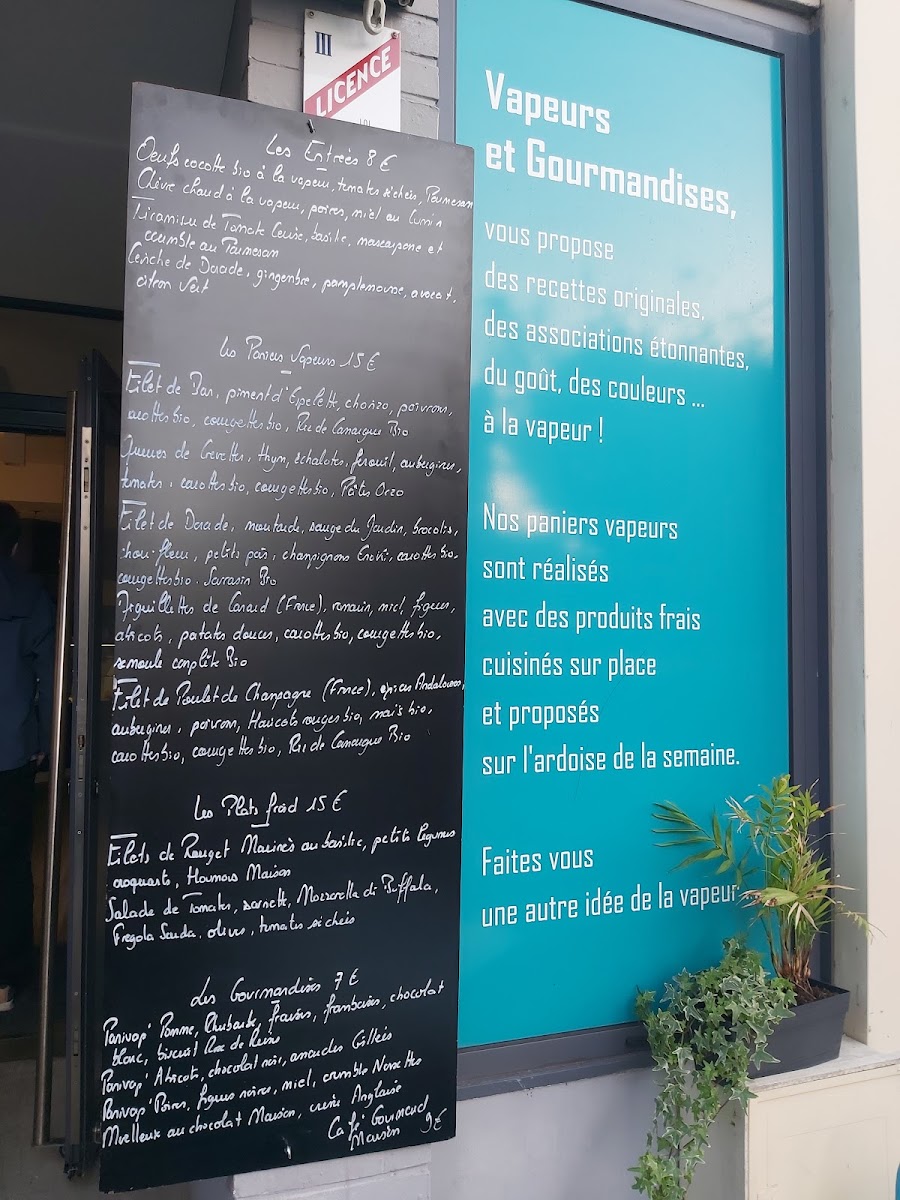 III
LICENCE
Les Entrées 8 €
Oeufs cocotte bio à la vapeur, tomates séchées, Parmesan
Chèvre chaud à la vapeur, poires, miel au Cumin
Tiramisu de Tomate Cerise, basilic, mascarpone et
crumble au Parmesan
Ceviche de Dorade, gingembre, pamplemousse, avocat,
citron vert
Les Paniers Vapeurs 15 €
Filet de Bar, piment d'Espelette, chorizo, poivrons,
carottes bio, courgettes bio, Riz de Camargue Bio
Queues de Crevettes, thym, échalotes, fenouil, aubergines,
tomates, carottes bio, courgettes bio, Pâtes Orzo
Filet de Dorade, moutarde, sauge du Jardin, brocolis,
chou-fleur, petits pois, champignons Enoki, carottes bio,
courgettes bio. Sarrasin Bio
Aiguillettes de Canard (France), romarin, miel, figues,
abricots, patates douces, carottes bio, courgettes bio,
semoule complète Bio
Filet de Poulet de Champagne (France), épices Andalouses,
aubergines, poivrons, Haricots rouges bio, maïs bio,
carottes bio, courgettes bio, Riz de Camargue Bio
Les Plats froid 15 €
Filets de Rouget Marinés au basilic, petits légumes
croquants, Houmous Maison
Salade de Tomates, Mozzarella di Buffala,
Fregola Sarda, olives, tomates séchées
Les Gourmandises 7 €
Panivap' Pomme, Rhubarbe, fraises, framboises, chocolat
blanc, biscuit Rose de Reims
Panivap' Abricots, chocolat noir, amandes Grillées
Panivap' Poires, figues noires, miel, crumble Noisettes
Moelleux au chocolat Maison, crème Anglaise
Café Gourmand
Maison 9 €
Vapeurs
et Gourmandises,
vous propose
des recettes originales,
des associations étonnantes,
du goût, des couleurs ...
à la vapeur !
Nos paniers vapeurs
sont réalisés
avec des produits frais
cuisinés sur place
et proposés
sur l'ardoise de la semaine.
Faites vous
une autre idée de la vapeur